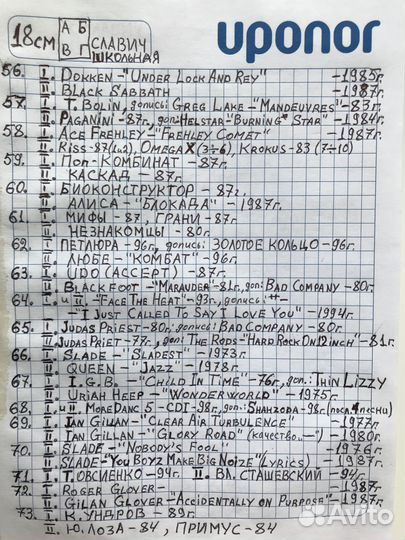 18см А Б В Г СЛАВИЧ ШКОЛЬНАЯ
uponor
56. I. DOKKEN - "UNDER LOCK AND KEY" - 1985г.
II. BLACK SABBATH - 1987г.
57. I. T. BOLIN, допись: GREG LAKE - "MANOEUVRES" - 83г.
II. PAGANINI - 87г., доп: HELSTAR "BURNING STAR" - 1984г.
58. I. ACE FREHLEY - "FREHLEY COMET" - 1987г.
II. KISS - 87(1и2), OMEGA X (3÷6), KROKUS - 83 (7÷10)
59. I. ПОП-КОМБИНАТ - 87г.
II. КАСКАД - 87г.
60. I. БИОКОНСТРУКТОР - 87г.
II. АЛИСА - "БЛОКАДА" - 1987г.
61. I. МИФЫ - 87, ГРАНИ - 87г.
II. НЕЗНАКОМЦЫ - 80г.
62. I. ПЕТЛЮРА - 96г., допись: ЗОЛОТОЕ КОЛЬЦО - 96г.
II. ЛЮБЕ - "КОМБАТ" - 96г.
63. I. UDO (ACCEPT) - 87г.
II. BLACKFOOT - "MARAUDER" - 81г., доп: BAD COMPANY - 80г.
64. I. и II. "FACE THE HEAT" - 93г., допись:
- "I JUST CALLED TO SAY I LOVE YOU" - 1994г.
65. I. JUDAS PRIEST - 80г., допись: BAD COMPANY - 80г.
II. JUDAS PRIET - 77г., доп: THE RODS - "HARD ROCK ON 12 INCH" - 81г.
66. I. SLADE - "SLADEST" - 1973г.
II. QUEEN - "JAZZ" - 1978г.
67. I. I.G.B. - "CHILD IN TIME" - 76г., доп.: THIN LIZZY
II. URIAH HEEP - "WONDERWORLD" - 1975г.
68. I. и II. MORE DANC 5 - CD1 - 98г., доп: SHAHZODA - 98г. (посл. 4 песни)
69. I. IAN GILLAN - "CLEAR AIR TURBULENCE" - 1977г.
II. IAN GILLAN - "GLORY ROAD" (качество..-") - 1980г.
70. I. SLADE - "NOBODY'S FOOL" - 1976г.
II. SLADE - "YOU BOYZ MAKE BIG NOIZE" (LYRICS) - 1987г.
71. I. Т. ОВСИЕНКО - 94г. II. ВЛ. СТАШЕВСКИЙ - 94г.
72. I. ROGER GLOVER - 1987г.
II. GILAN GLOVER - "ACCIDENTALLY ON PURPOSE" - 1987г.
73. I. К. УНДРОВ - 89г.
II. Ю. ЛОЗА - 84, ПРИМУС - 84
Avito